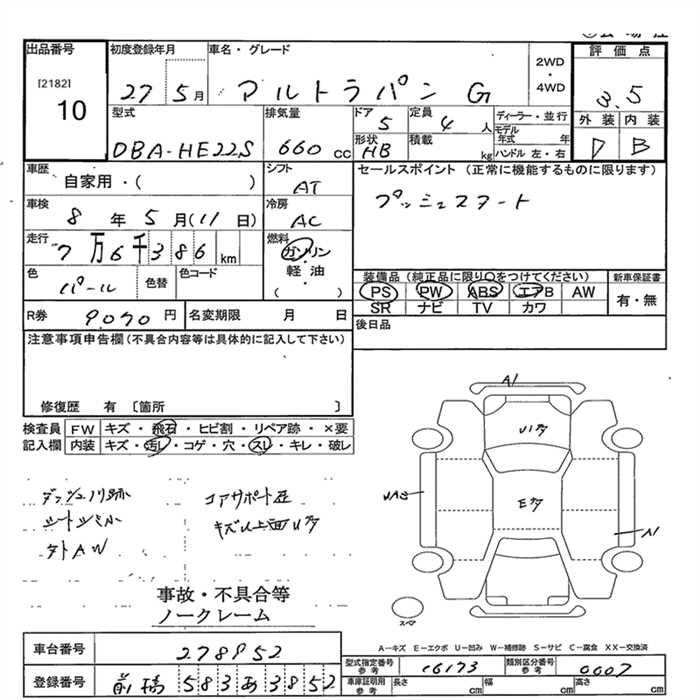 出品番号
[2182]
10
初度登録年月
27 5月
車名・グレード
アルトラパン G
2WD
・
4WD
評価点
3.5
外装 内装
D B
型式
DBA-HE22S
排気量
660 CC
ドア
5
定員
4 人
ディーラー・並行
モデル
年式 年
ハンドル 左・右
形状
HB
積載
kg
車歴
自家用・( )
シフト
AT
セールスポイント (正常に機能するものに限ります)
プッシュスタート
車検
8 年 5 月(11 日)
冷房
AC
走行
7万6千386 km
燃料
ガソリン
・
軽油
( )
色
パール
色替
色コード
装備品(純正品に限り○をつけてください)
PS PW ABS エアB AW
SR ナビ TV カワ
新車保証書
有・無
R券 9,070 円
名変期限 月 日
後日品
注意事項申告欄(不具合内容等は具体的に記入して下さい)
修復歴 有 〔箇所 〕
検査員
記入欄
FW キズ・飛石・ヒビ割・リペア跡・×要
内装 キズ・汚レ・コゲ・穴・スレ・キレ・破レ
シートシミ小
タトAW
コアサポート歪
A1
A1
スペア
事故・不具合等
ノークレーム
A-キズ E-エクボ U-凹み W-補修跡 S-サビ C-腐食 XX-交換済
車台番号 278952
登録番号 前橋 583 あ 3852
型式指定番号
参考
16173
類別区分番号
参考
0007
車庫証明用
参考
長さ cm 幅 cm 高さ cm